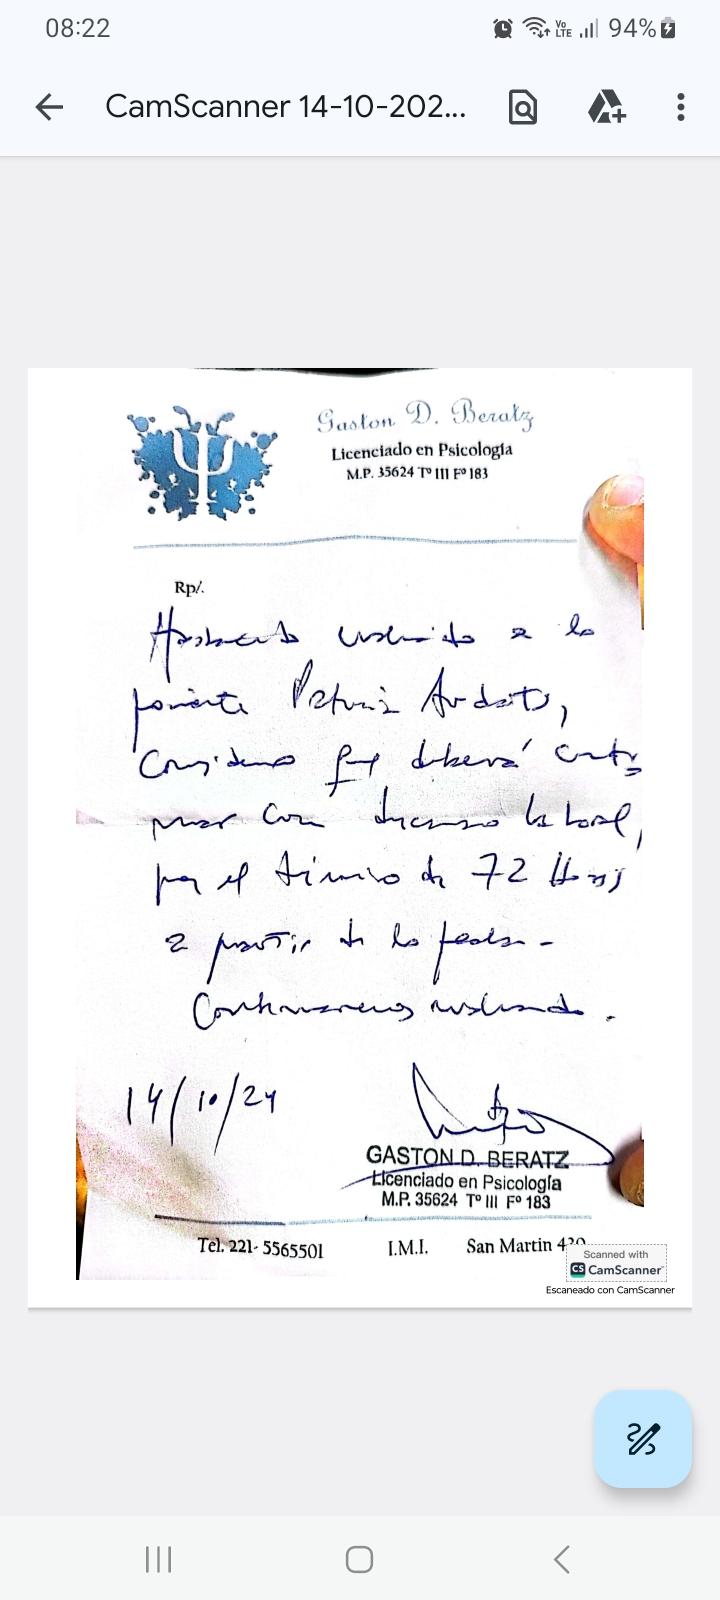 08:22
Vo
LTE
94%
CamScanner 14-10-202...
Gaston D. Beratz
Licenciado en Psicología
M.P. 35624 Tº III Fº 183
Rp/.
a la
paciente
Considero que deberá conti
nuar con descanso laboral,
por el término de 72 Horas
a partir de la fecha -
Continuaremos evaluando.
14/10/24
GASTON D. BERATZ
Licenciado en Psicología
M.P. 35624 Tº III Fº 183
Tel. 221- 5565501 I.M.I. San Martin
Scanned with
CS CamScanner
Escaneado con CamScanner